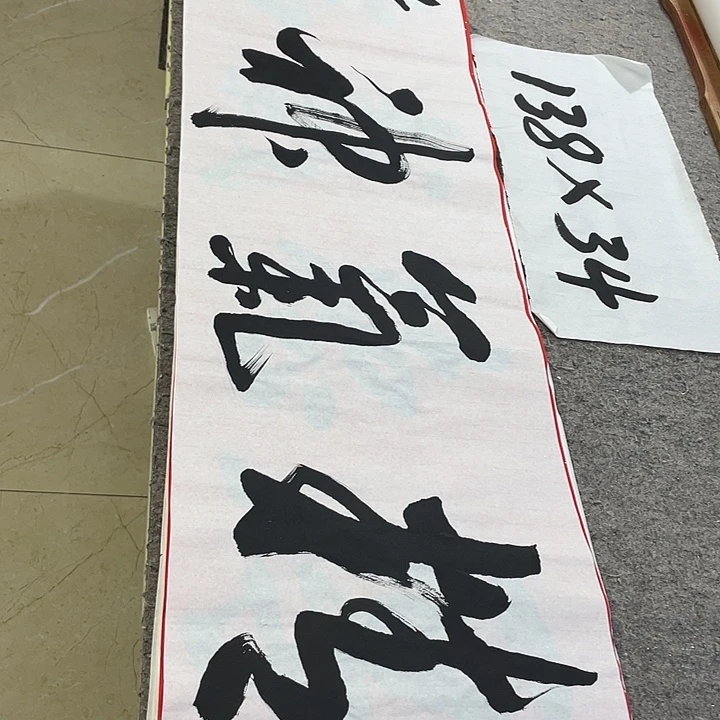 精氣神
138×34